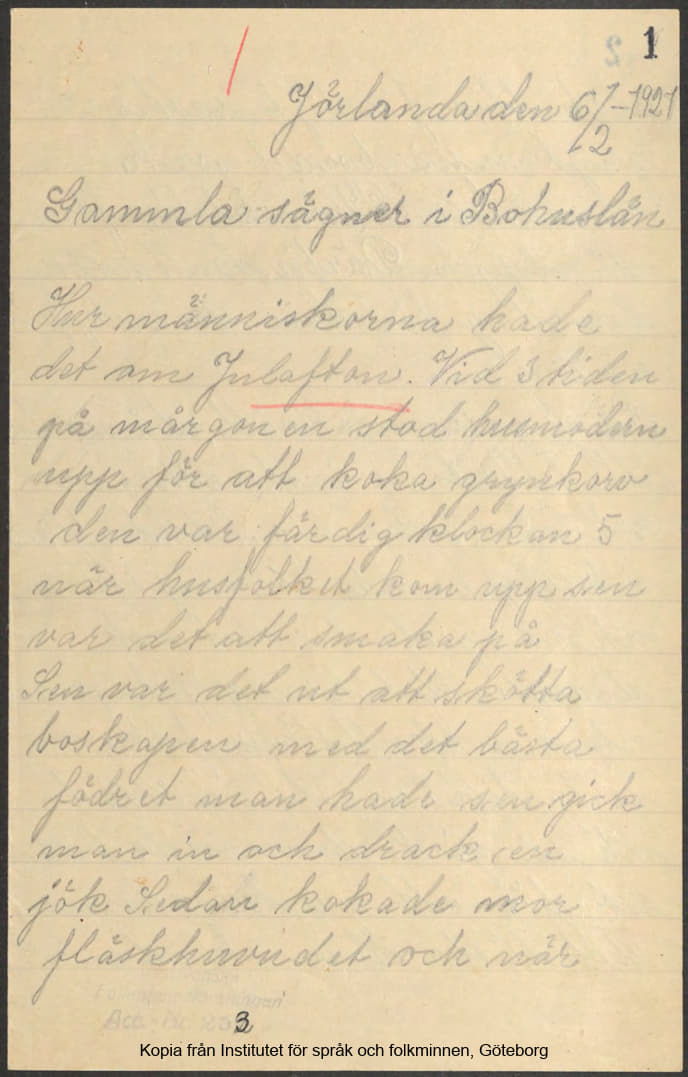 1
Jörlanda den 6/2-1921
Gammla sägner i Bohuslän
Hur människorna hade
det om Julafton. Vid 3 tiden
på mårgonen stod husmodern
upp för att koka grynkorv
den var färdig klockan 5
när husfolket kom upp sen
var det att smaka på
Sen var det ut att skötta
boskapen med det bästa
födret man hade sen gick
man in och drack en
jök Sedan kokade mor
fläskhuvudet och när
3
Kopia från Institutet för språk och folkminnen, Göteborg